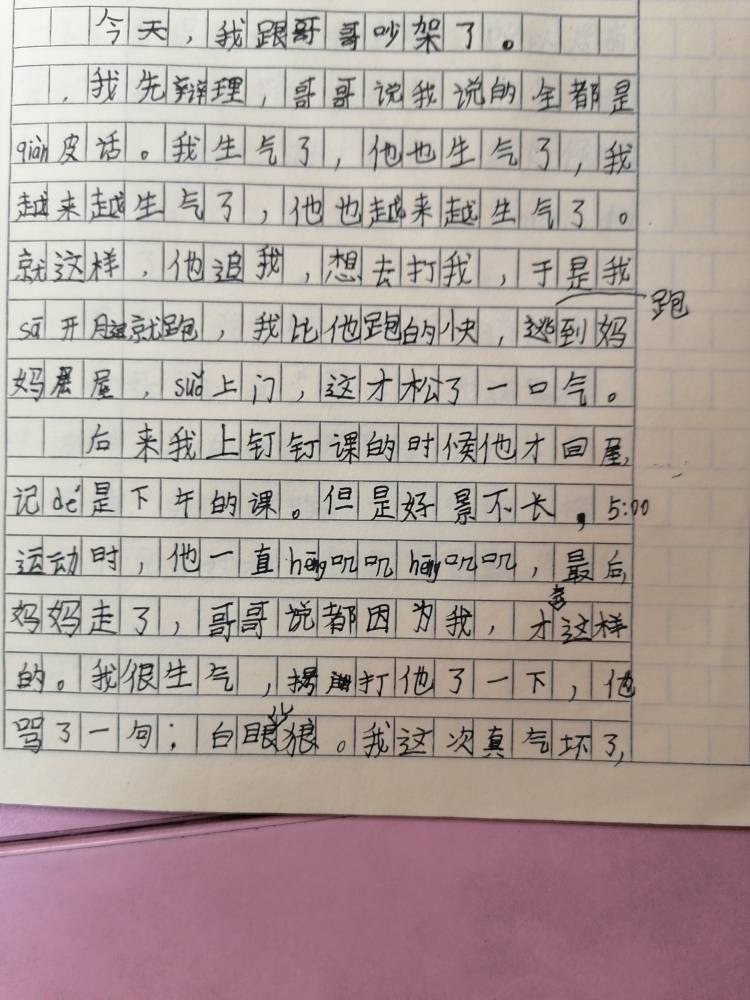 今天，我跟哥哥吵架了。
我先辩理，哥哥说我说的全都是
qiàn皮话。我生气了，他也生气了，我
越来越生气了，他也越来越生气了。
就这样，他追我，想去打我，于是我
跑
sā开腿就跑，我比他跑的快，逃到妈
妈屋，suǒ上门，这才松了一口气。
后来我上钉钉课的时候他才回屋，
记dé是下午的课。但是好景不长，5:00
运动时，他一直hēng叽叽hēng叽叽，最后
妈妈走了，哥哥说都因为我，才会这样
的。我很生气，打他了一下，他
骂了一句：白眼狼。我这次真气坏了，